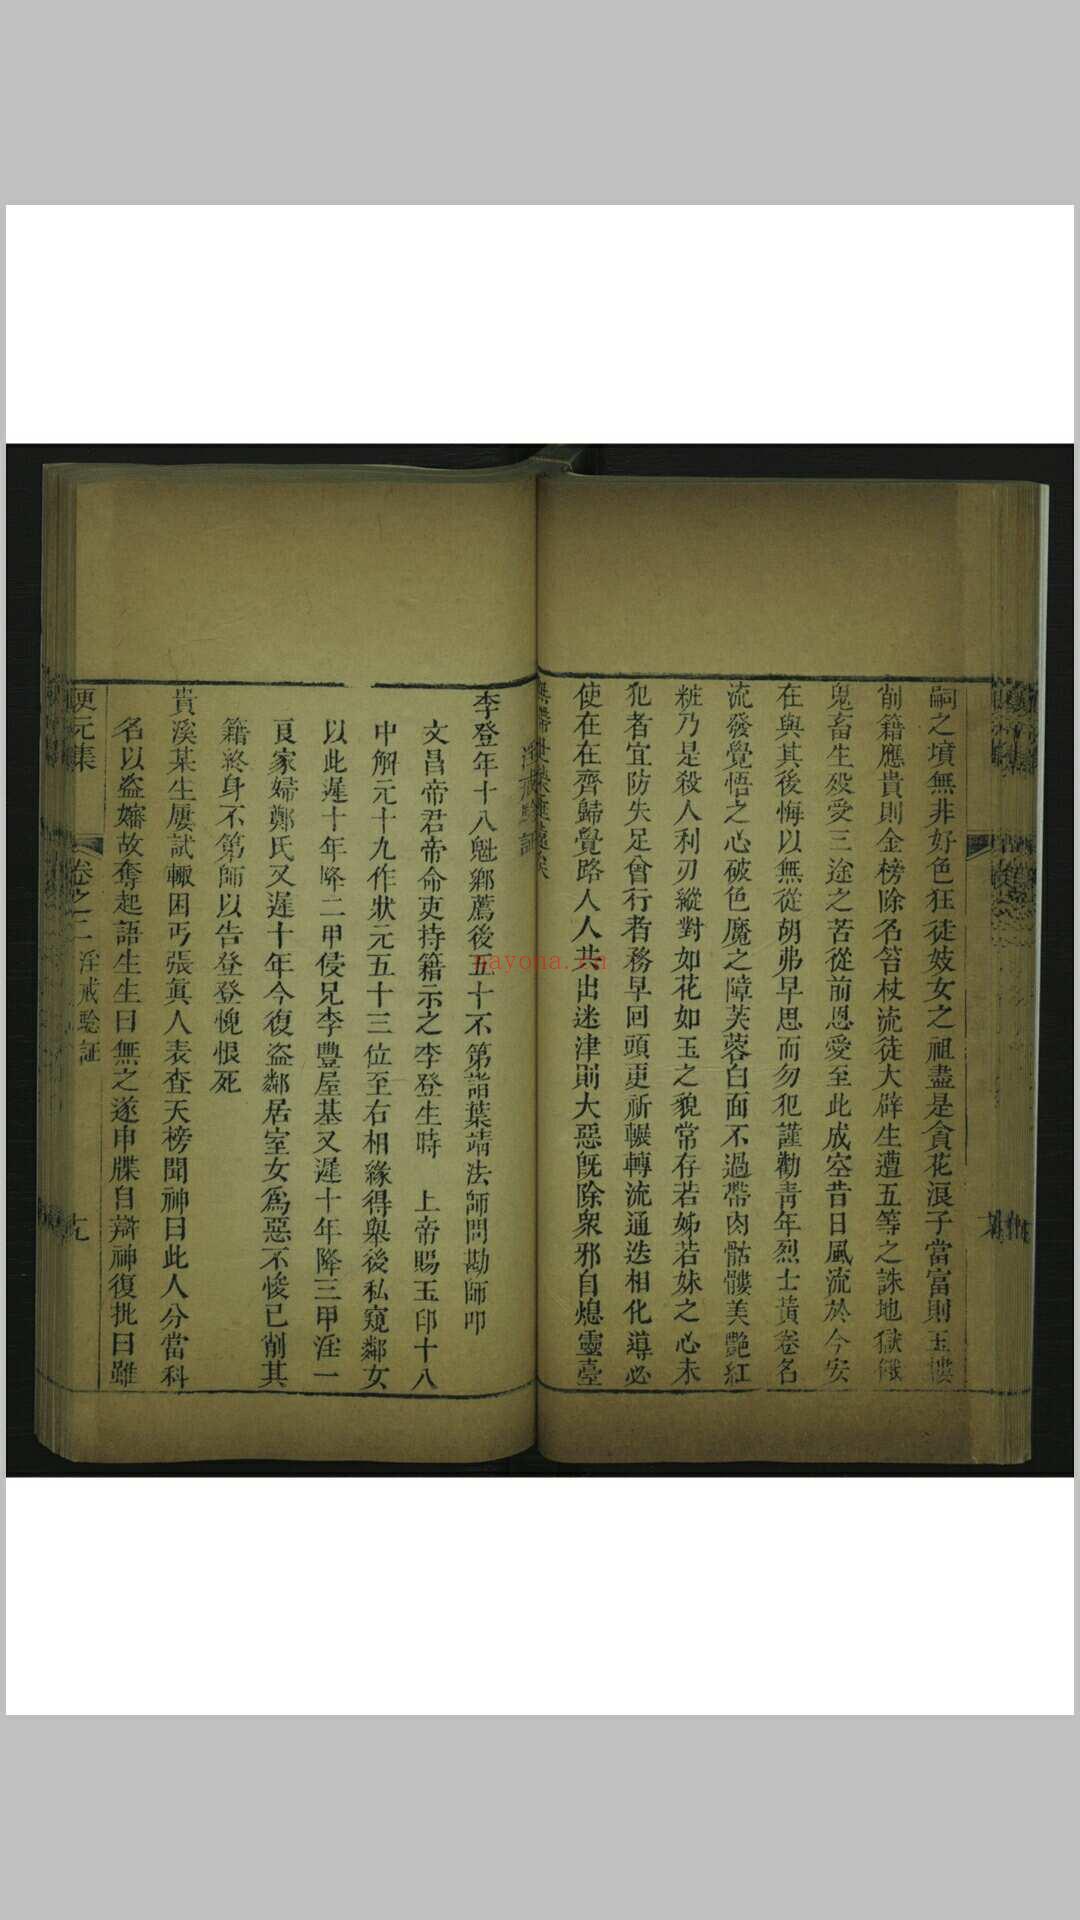 嗣之墳無非好色狂徒妓女之祖盡是貪花浪子當富則玉樓
削籍應貴則金榜除名笞杖流徒大辟生遭五等之誅地獄餓
鬼畜生歿受三途之苦從前恩愛至此成空昔日風流於今安
在與其後悔以無從胡弗早思而勿犯謹勸靑年烈士黃卷名
流發覺悟之心破色魔之障芙蓉白面不過帶肉骷髏美艷紅
粧乃是殺人利刃縱對如花如玉之貌常存若姊若妹之心未
犯者宜防失足曾行者務早回頭更祈輾轉流通迭相化導必
使在在齊歸覺路人人共出迷津則大惡旣除衆邪自熄靈臺
淫戒驗証
李登年十八魁鄉薦後五十不第詣葉靖法師問勘師叩
文昌帝君帝命吏持籍示之李登生時　上帝賜玉印十八
中解元十九作狀元五十三位至右相緣得舉後私窺鄰女
以此遲十年降二甲侵兄李豐屋基又遲十年降三甲淫一
良家婦鄭氏又遲十年今復盗鄰居室女爲惡不悛已削其
籍終身不第師以告登登愧恨死
貴溪某生屢試輒困丐張眞人表查天榜聞神曰此人分當科
名以盗嬸故奪起語生生曰無之遂申牒自辯神復批曰雖
卷之二　淫戒驗証
nayona.cn